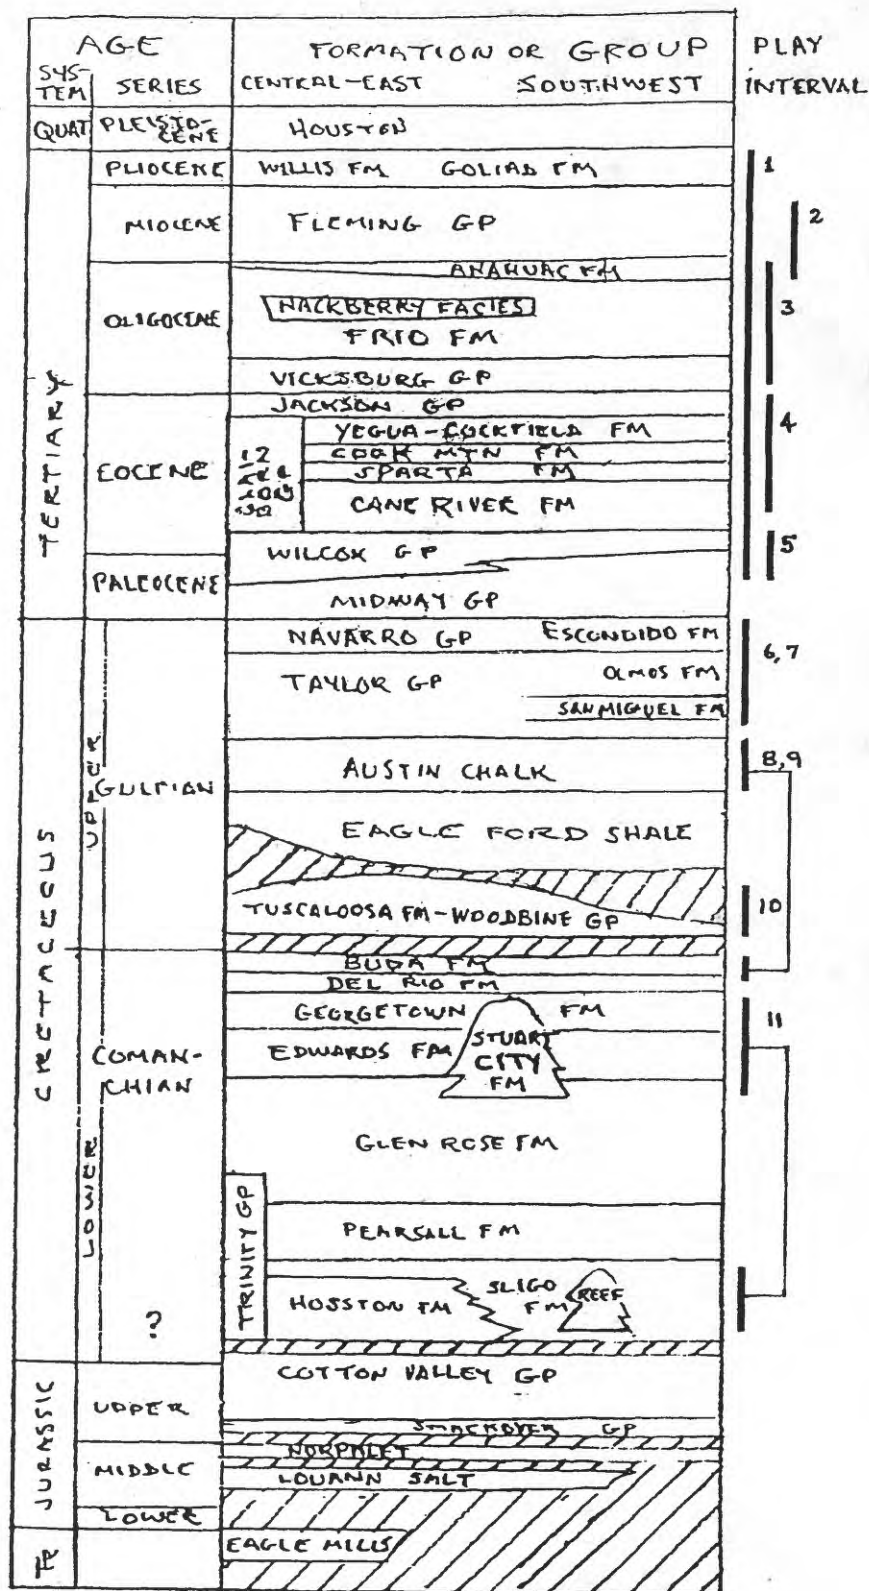 AGE
FORMATION OR GROUP
PLAY
SYS-
TEM
SERIES
CENTRAL-EAST
SOUTHWEST
INTERVAL
QUAT
PLEISTO-
CENE
HOUSTON
TERTIARY
PLIOCENE
WILLIS FM
GOLIAD FM
1
MIOCENE
FLEMING GP
2
ANAHUAC FM
OLIGOCENE
HACKBERRY FACIES
3
FRIO FM
VICKSBURG GP
JACKSON GP
EOCENE
YEGUA-COCKFIELD FM
4
COOK MTN FM
SPARTA FM
CANE RIVER FM
WILCOX GP
5
PALEOCENE
MIDWAY GP
CRETACEOUS
UPPER
GULFIAN
NAVARRO GP
ESCONDIDO FM
6,7
TAYLOR GP
OLMOS FM
SAN MIGUEL FM
AUSTIN CHALK
8,9
EAGLE FORD SHALE
TUSCALOOSA FM-WOODBINE GP
10
LOWER
COMAN-
CHIAN
?
BUDA FM
DEL RIO FM
GEORGETOWN FM
11
EDWARDS FM
STUART
CITY
FM
GLEN ROSE FM
TRINITY GP
PEARSALL FM
HOSSTON FM
SLIGO
FM
REEF
JURASSIC
COTTON VALLEY GP
UPPER
SMACKOVER GP
MIDDLE
NORPHLET
LOUANN SALT
LOWER
EAGLE MILLS